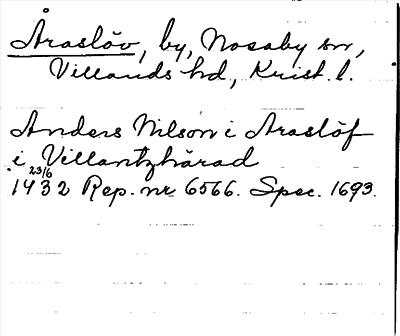 Åraslöv, by, Nosaby sn,
Villands hd, Krist. l.
Anders Nilson i Araslöf
i Villantzhärad
23/6
1432 Rep. nr 6566. Spec. 1693.